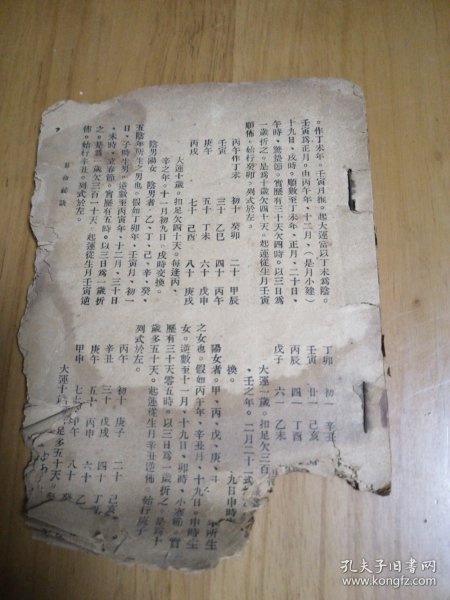 。作丁未年。壬寅月推。起大運當以丁未爲陰。
壬寅爲正月。由丙午年、十二月、（是月小建）
十九日、戌時。順數至丁未年、正月、二十日、
午時、驚蟄節。實歷有三十天欠四時。以三日爲
一歲折之。是爲十歲欠四十天。起運從生月壬寅
順佈。始行癸卯。列式於左。
丙午作丁未 初十 癸卯 二十 甲辰
壬寅 三十 乙巳 四十 丙午
庚午 五十 丁未 六十 戊申
丙戌 七十 己酉 八十 庚戌
大運十歲。扣足欠四十天。每逢丙、
辛之年。十一月初九日。戌時交換。
陰男陽女 陰男者、乙、丁、己、辛、癸、
五陰年所生之男也。假如丁卯年、壬寅月、初一
日、子時生男。逆數至丙寅年、十二月、三十日
、未時、立春節。實歷有五時。以三日爲一歲折
之。是爲一歲欠三百一十天。起運從生月壬寅逆
佈。始行辛丑。列式於左。
丁卯 初一 辛丑
壬寅 廿一 己亥
丙辰 四一 丁酉
戊子 六一 乙未
大運一歲。扣足欠三百
、壬之年。二月二十一
九日申時
換。
陽女者、甲、丙、戊、庚、 年所生
之女也。假如丙午年、辛丑月、十九日、申時生
女。逆數至十一月、十九日、卯時、小寒節。實
歷有三十天零五時。以三日爲一歲折之。是爲十
歲多五十天。起運從生月辛丑逆佈。始行庚子
列式於左。
丙午 初十 庚子 二十 己亥
三十 戊戌 四十 丁
庚午 五十 丙申 六十 乙
甲申 七十 甲午 八十 癸
大運十 足多五十天。
孔夫子旧书网
www.kongfz.com